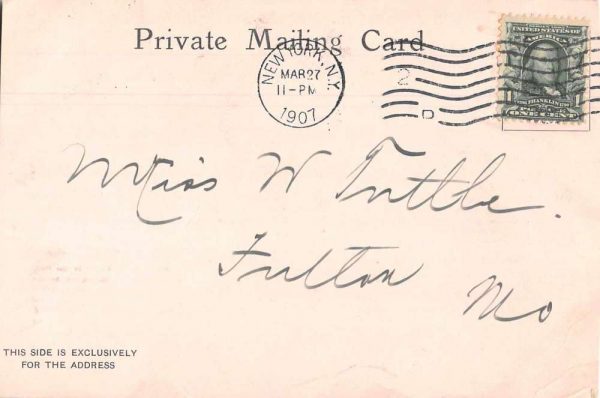 Private Mailing Card
NEW YORK, N.Y.
MAR 27
11-PM
1907
2
D
UNITED STATES OF AMERICA
1 FRANKLIN 1
ONE CENT
Miss W Tuttle.
Fulton Mo
THIS SIDE IS EXCLUSIVELY
FOR THE ADDRESS